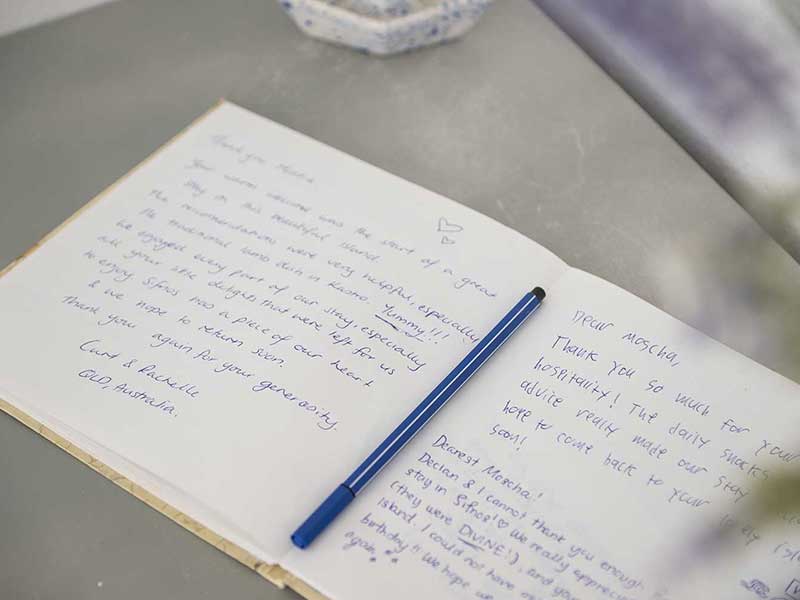 Thank you Moscha
Your warm welcome was the start of a great
stay on this beautiful island.
The recommendations were very helpful, especially
the traditional lamb dish in Kastro. Yummy!!!
We enjoyed every part of our stay, especially
all your little delights that were left for us
to enjoy. Sifnos has a piece of our heart
& we hope to return soon.
Thank you again for your generosity.
Curt & Rachelle
QLD, Australia.
Dear Moscha,
Thank you so much for your
hospitality! The daily snacks
advice really made our stay
hope to come back to your lovely
soon!
Dearest Moscha!
Declan & I cannot thank you enough
stay in Sifnos! We really
(they were DIVINE!), and
island. I could not have
birthday!! We hope
again